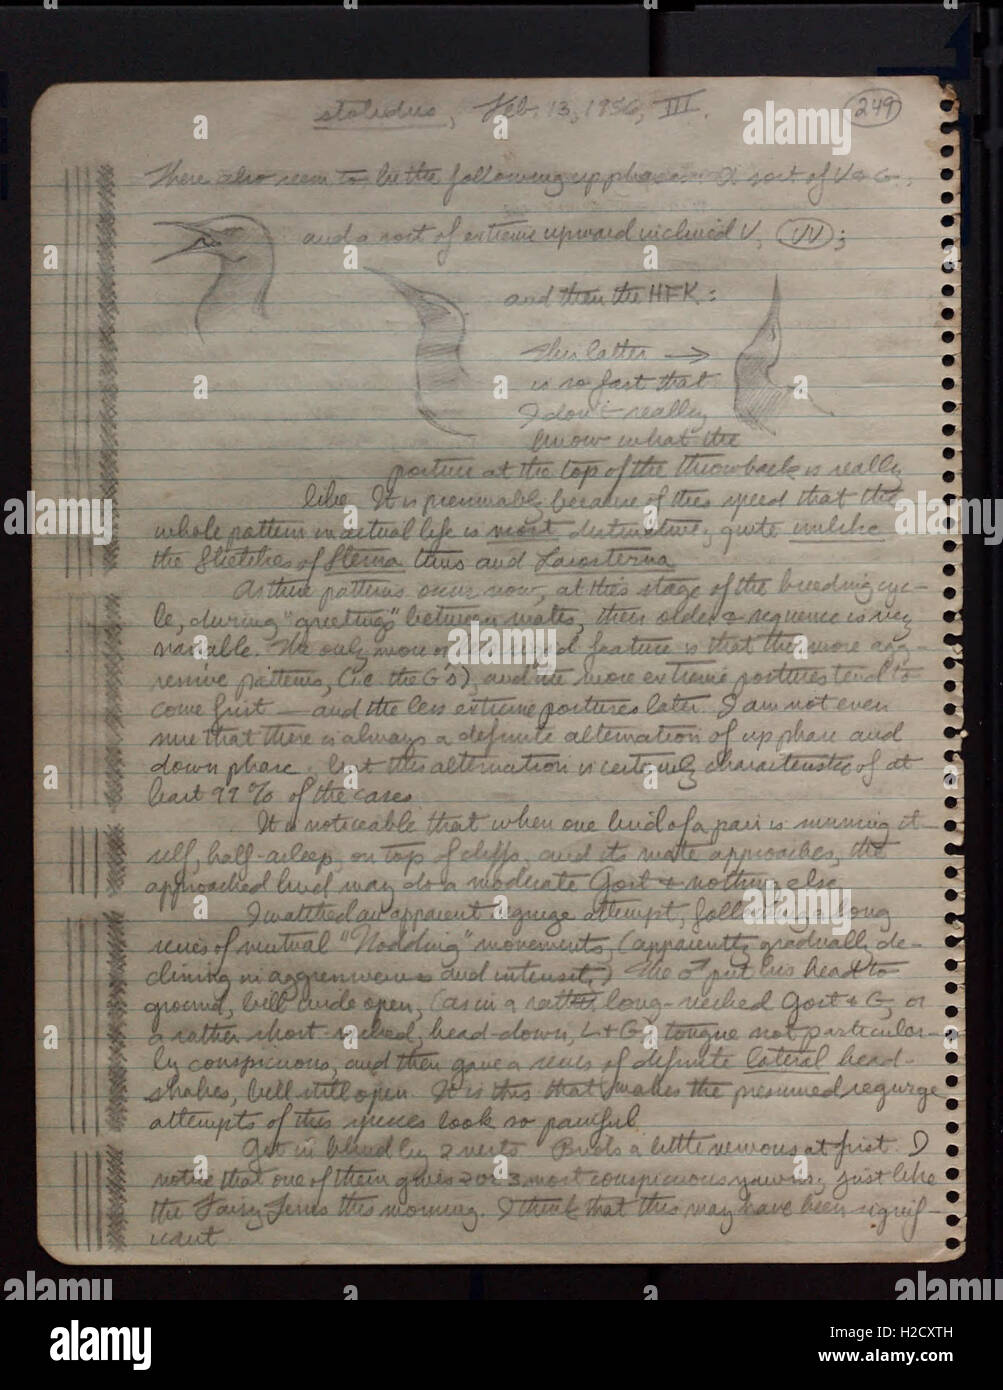 stolidus, Feb. 13, 1956, III.
249
There also seem to be the following up phases: A sort of V & G;
and a sort of extreme upward inclined V, VV;
and then the HFK:
This latter →
is so fast that
I don't really
know what the
posture at the top of the throwback is really
like. It is presumably because of this speed that the
whole pattern in actual life is most distinctive, quite unlike
the Sketches of Sterna terns and Larosterna
As these patterns occur now, at this stage of the breeding cyc-
le, during "greetings" between mates, their order & sequence is very
variable. The only more or less rigid feature is that the more agg-
ressive patterns, (i.e. the G's), and the more extreme postures tend to
come first — and the less extreme postures later. I am not even
sure that there is always a definite alternation of up phase and
down phase, but this alternation is certainly characteristic of at
least 97% of the cases.
It is noticeable that when one bird of a pair is sunning it-
self, half-asleep, on top of cliffs, and its mate approaches, the
approached bird may do a moderate Gost & nothing else.
I watched an apparent regurge attempt, following a long
series of mutual "Nodding" movements, (apparently gradually de-
clining in aggressiveness and intensity.) The ♂ put his head to
ground, bill wide open, (as in a rather long-necked Gost & G, or
a rather short-necked, head-down, L + G), tongue not particular-
ly conspicuous, and then gave a series of definite lateral head-
shakes, bill still open. It is this that makes the presumed regurge
attempts of this species look so painful.
Get in blind by 2 nests. Birds a little nervous at first. I
notice that one of them gives 2 or 3 most conspicuous yawns, just like
the Fairy Terns this morning. I think that this may have been signif-
icant
alamy stock photo
a
alamy
Image ID: H2CXTH
www.alamy.com